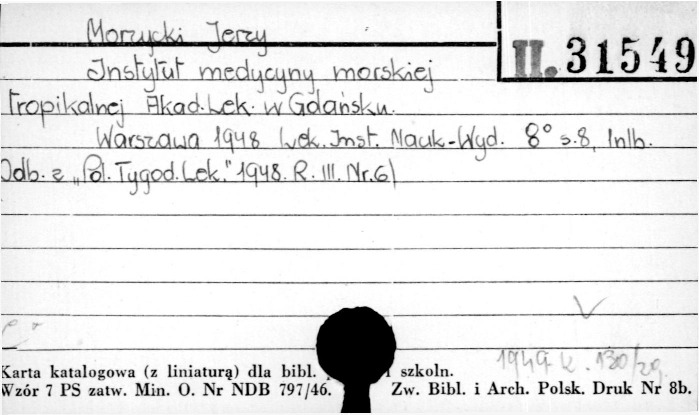 Morzycki Jerzy
II. 31549
Instytut medycyny morskiej
tropikalnej Akad. Lek. w Gdańsku.
Warszawa 1948 Lek. Inst. Nauk-Wyd. 8° s. 8, 1nlb.
Odb. z „Pol. Tygod. Lek." 1948. R. III. Nr. 6)
1949 K. 130/29.
Karta katalogowa (z liniaturą) dla bibl. szkoln.
Wzór 7 PS zatw. Min. O. Nr NDB 797/46. Zw. Bibl. i Arch. Polsk. Druk Nr 8b.